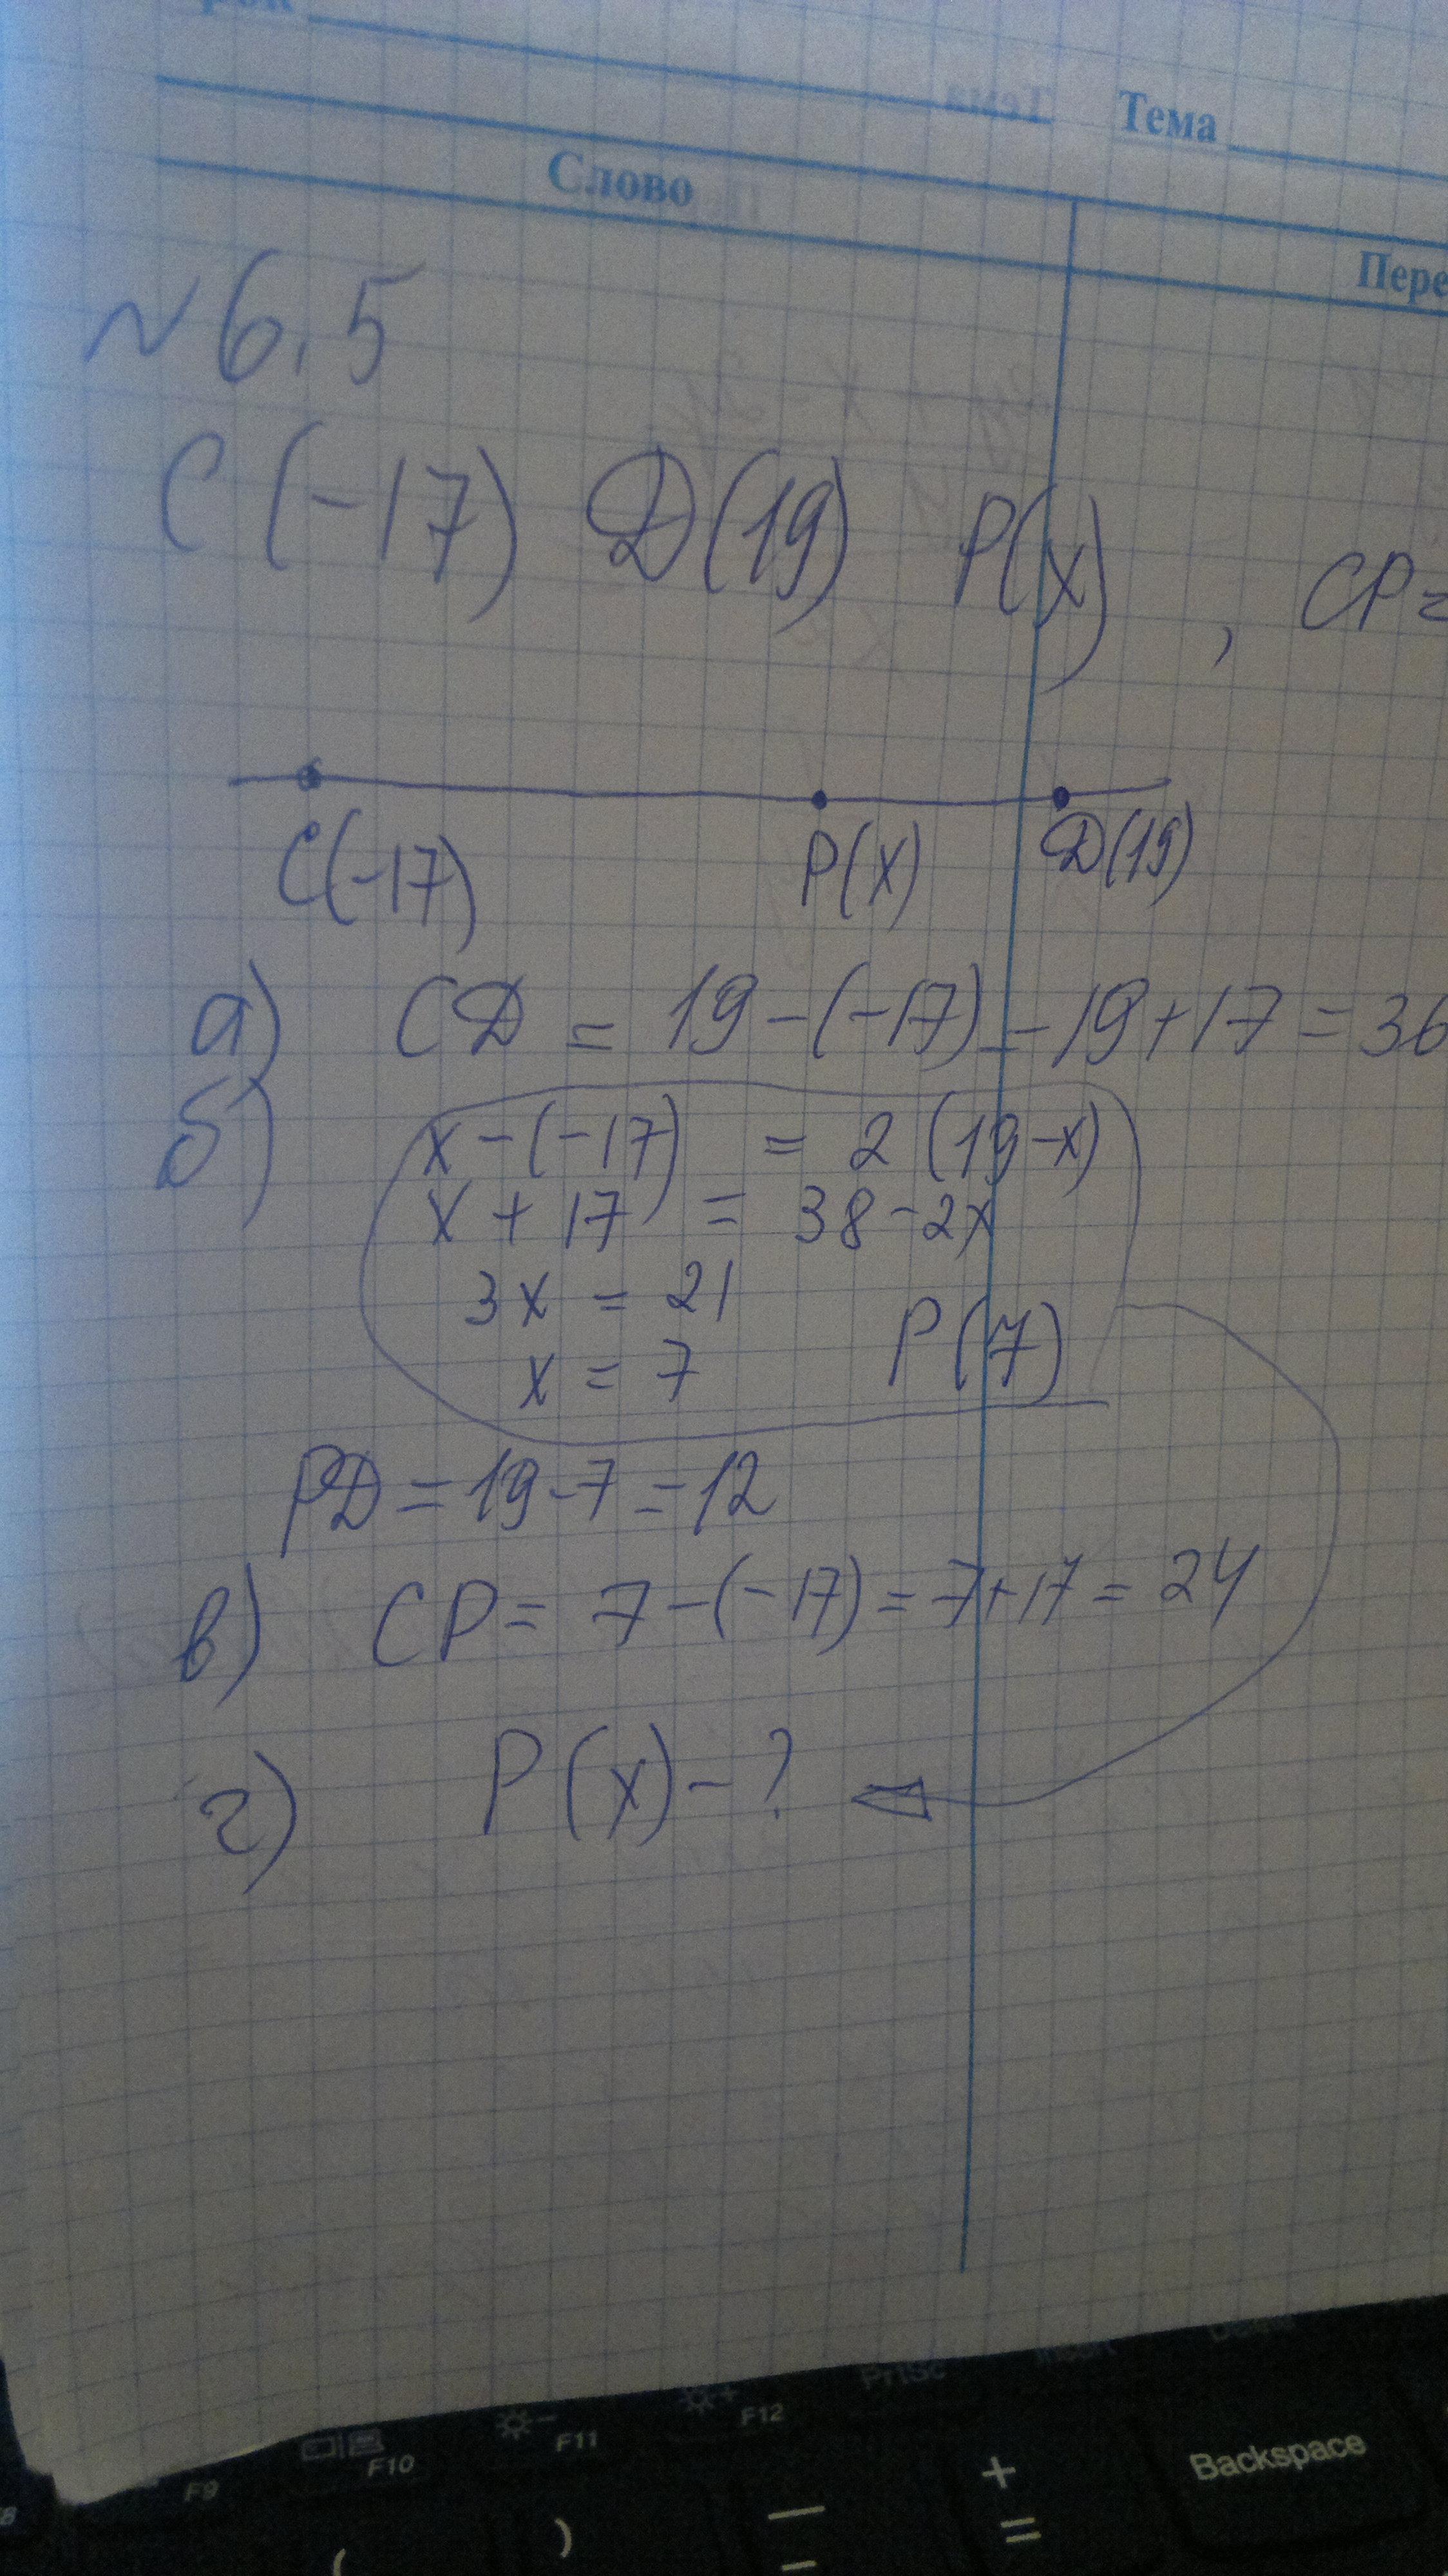 Тема
Слово
Пере
N 6.5
C(-17) D(19) P(x), CP=
C(-17) P(x) D(19)
а) CD = 19-(-17) = 19+17 = 36
б) x-(-17) = 2(19-x)
x + 17 = 38-2x
3x = 21
x = 7 P(7)
PD = 19-7 = 12
в) CP = 7-(-17) = 7+17 = 24
г) P(x) - ?
PrtSc Insert
F9 F10 F11 F12
Backspace
( ) — - + =